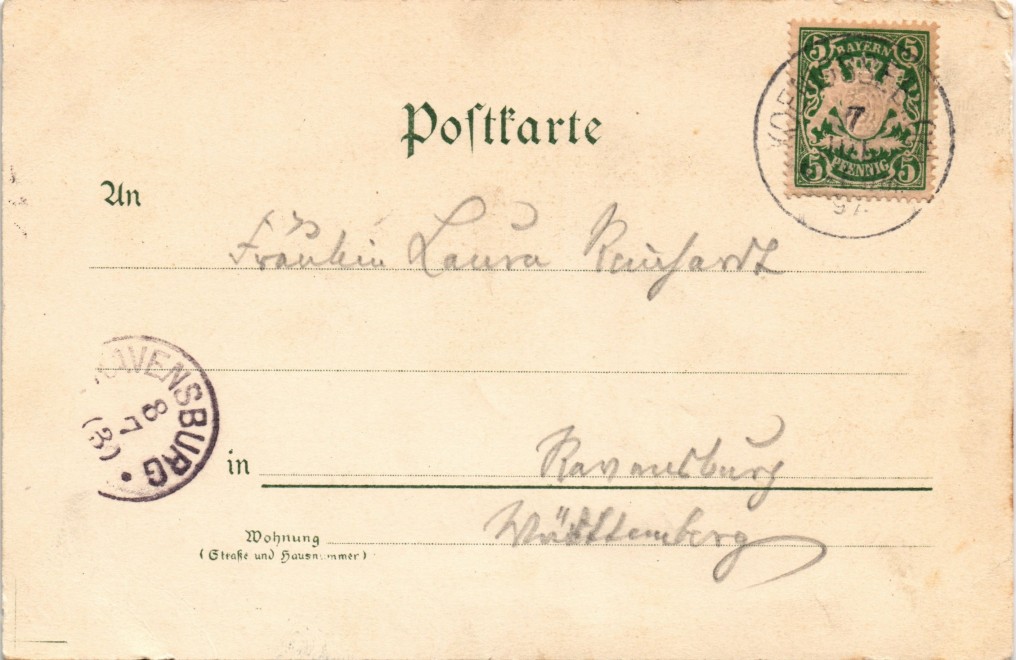 5 BAYERN 5
7
5 PFENNIG 5
97.
Postkarte
An
Fräulein Laura Reinhardt
RAVENSBURG
8
7
in Ravensburg
Wohnung Württemberg
(Straße und Hausnummer)